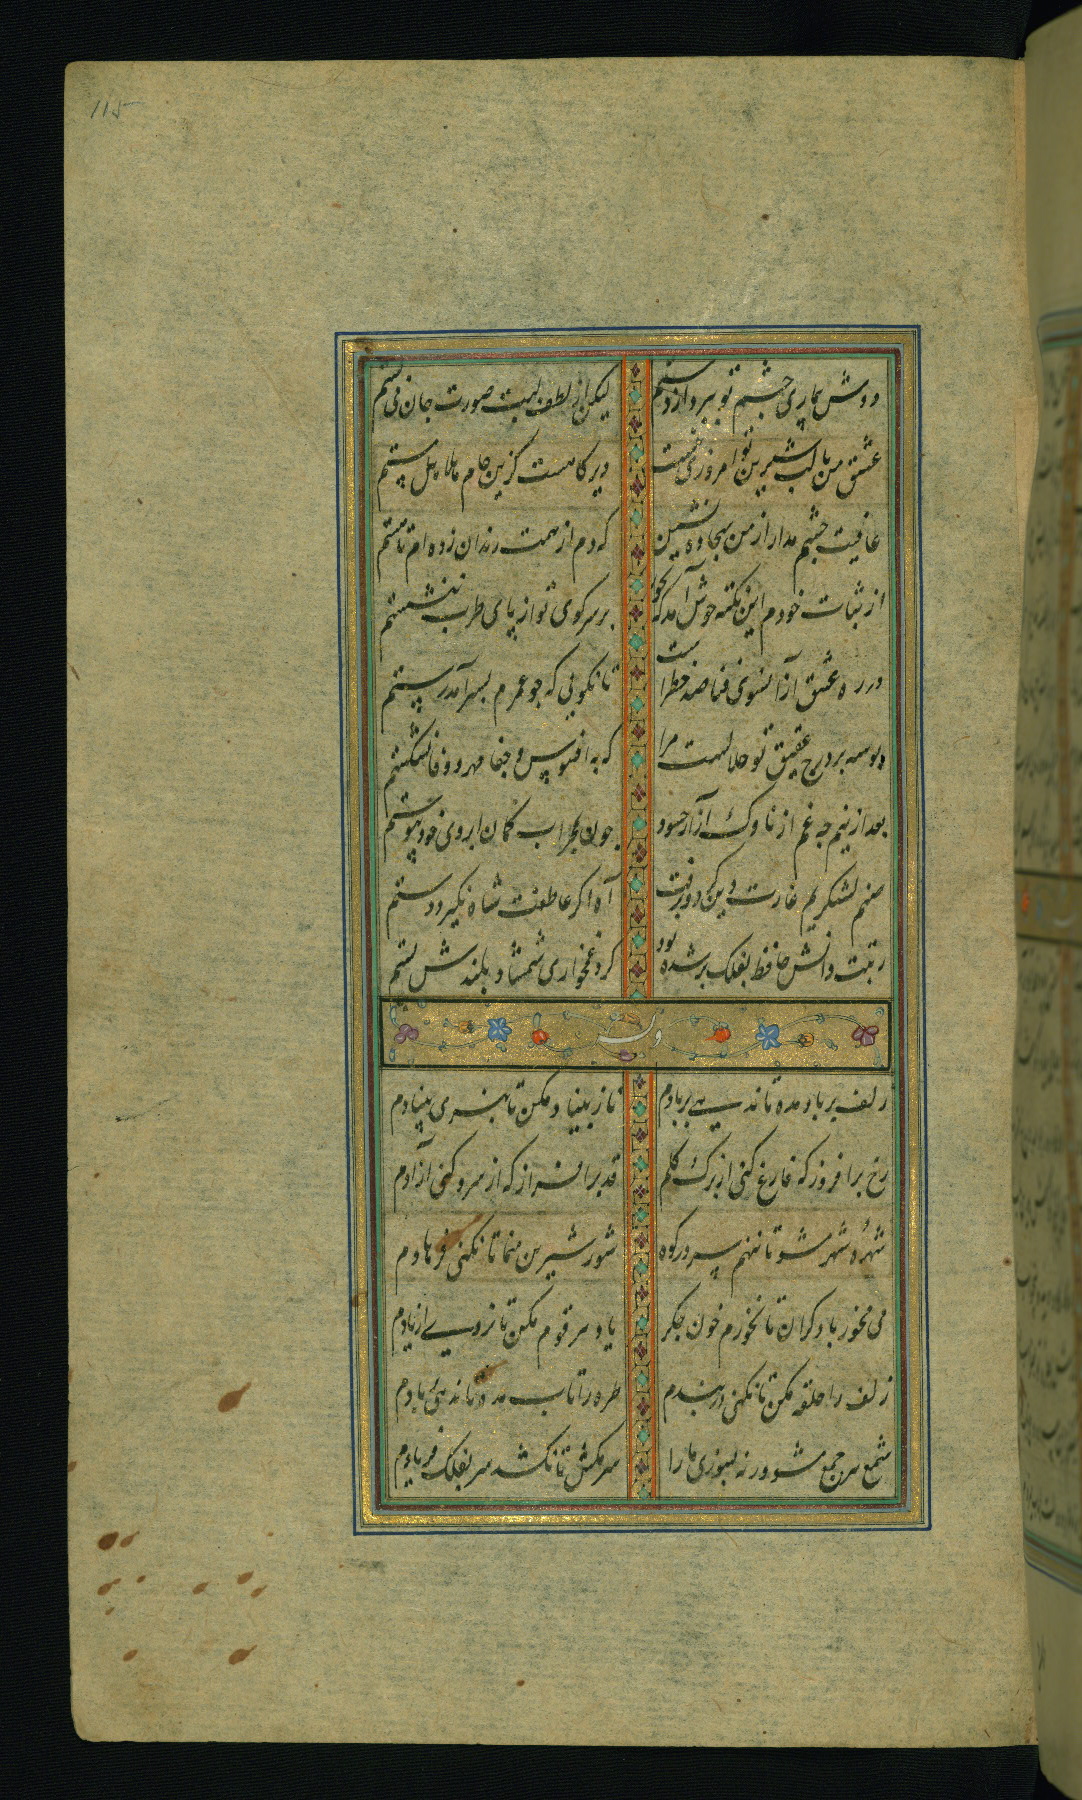 115
دوش بیماری چشم تو ببرد از دستم
لیکن از لطف لبت صورت جان می بستم
عشق من با لب شیرین تو امروزی نیست
دیر کاهست کزین جام هلالی مستم
عافیت چشم مدار از من سجاده نشین
که دم از همت رندان زده ام تا هستم
از ثبات خودم این نکته خوش آمد که بجور
بر سر کوی تو از پای طرب ننشستم
در ره عشق از آنسوی فنا صد خطر است
تا نکویی که چو عمرم بسر آمد رستم
بوسه بر درج عقیق تو حلالست مرا
که به افسوس و جفا مهر و وفا نشکستم
بعد ازینم چه غم از ناوک آزار حسود
چون بمحراب کمان ابروی خود پیوستم
صنم لشکریم غارت دین کرد و برفت
آه اکر عاطفت شاه نکیرد دستم
رتبت دانش حافظ بفلک بر شده بود
کرد غمخواری شمشاد بلندش پستم
وله
زلف بر باد مده تا ندهی بر بادم
ناز بنیاد مکن تا نبری بنیادم
رخ برافروز که فارغ کنی از برک کلم
قد برافراز که از سرو کنی آزادم
شهره شهر مشو تا ننهم سر در کوه
شور شیرین منما تا نکنی فرهادم
می مخور با دکران تا نخورم خون جکر
یاد هر قوم مکن تا نروی از یادم
زلف را حلقه مکن تا نکنی در بندم
طره را تاب مده تا ندهی بادم
شمع هر جمع مشو ورنه بسوزی ما را
سر مکش تا نکشد سر بفلک فریادم